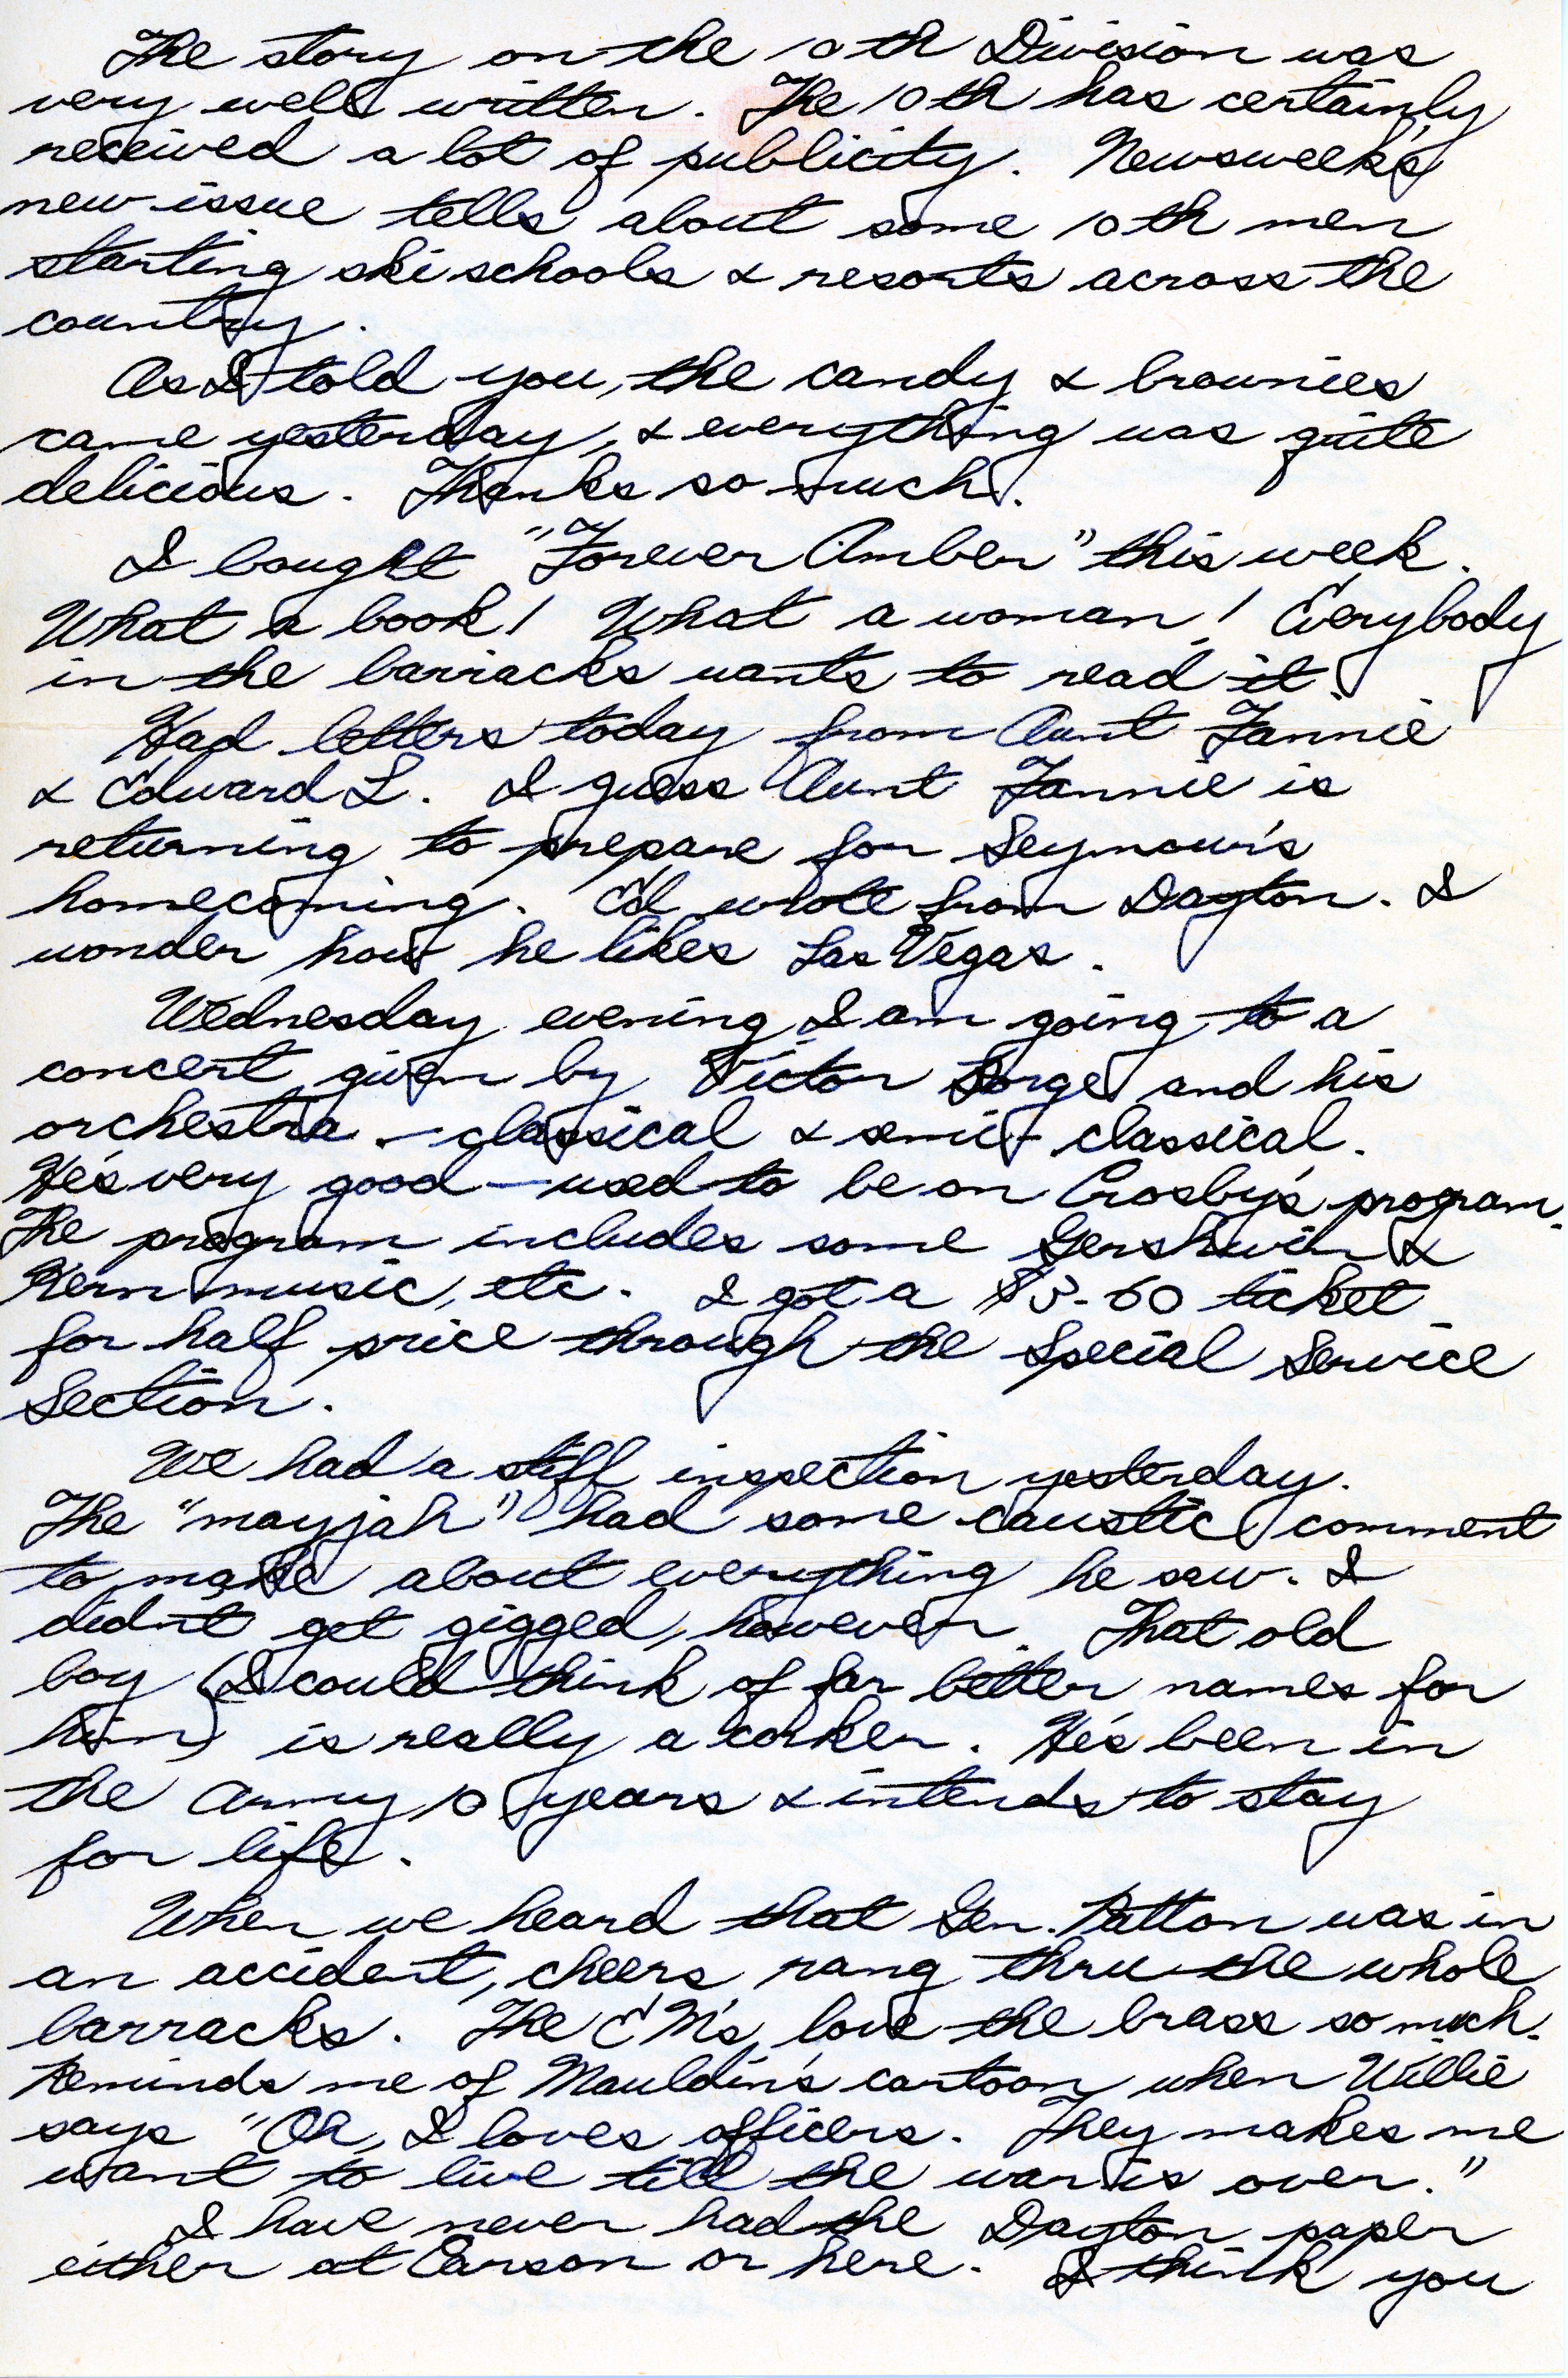 The story on the 10th Division was
very well written. The 10th has certainly
received a lot of publicity. Newsweek's
new issue tells about some 10th men
starting ski schools & resorts across the
country.
As I told you, the candy & brownies
came yesterday, & everything was quite
delicious. Thanks so much.
I bought "Forever Amber" this week.
What a book! What a woman! Everybody
in the barracks wants to read it.
Had letters today from Aunt Fannie
& Edward L. I guess Aunt Fannie is
returning to prepare for Seymour's
homecoming. Ed wrote from Dayton. I
wonder how he likes Las Vegas.
Wednesday evening I am going to a
concert given by Victor Borge and his
orchestra - classical & semi-classical.
He's very good - used to be on Crosby's program.
The program includes some Gershwin &
Kern music, etc. I got a $3.60 ticket
for half price through the Special Service
Section.
We had a stiff inspection yesterday.
The "mayjah" had some caustic comment
to make about everything he saw. I
didn't get gigged, however. That old
boy (I could think of far better names for
him) is really a corker. He's been in
the army 10 years & intends to stay
for life.
When we heard that Gen. Patton was in
an accident, cheers rang thru the whole
barracks. The EM's love the brass so much.
Reminds me of Mauldin's cartoon when Willie
says "Oh, I loves officers. They makes me
want to live till the war is over."
I have never had the Dayton paper
either at Carson or here. I think you